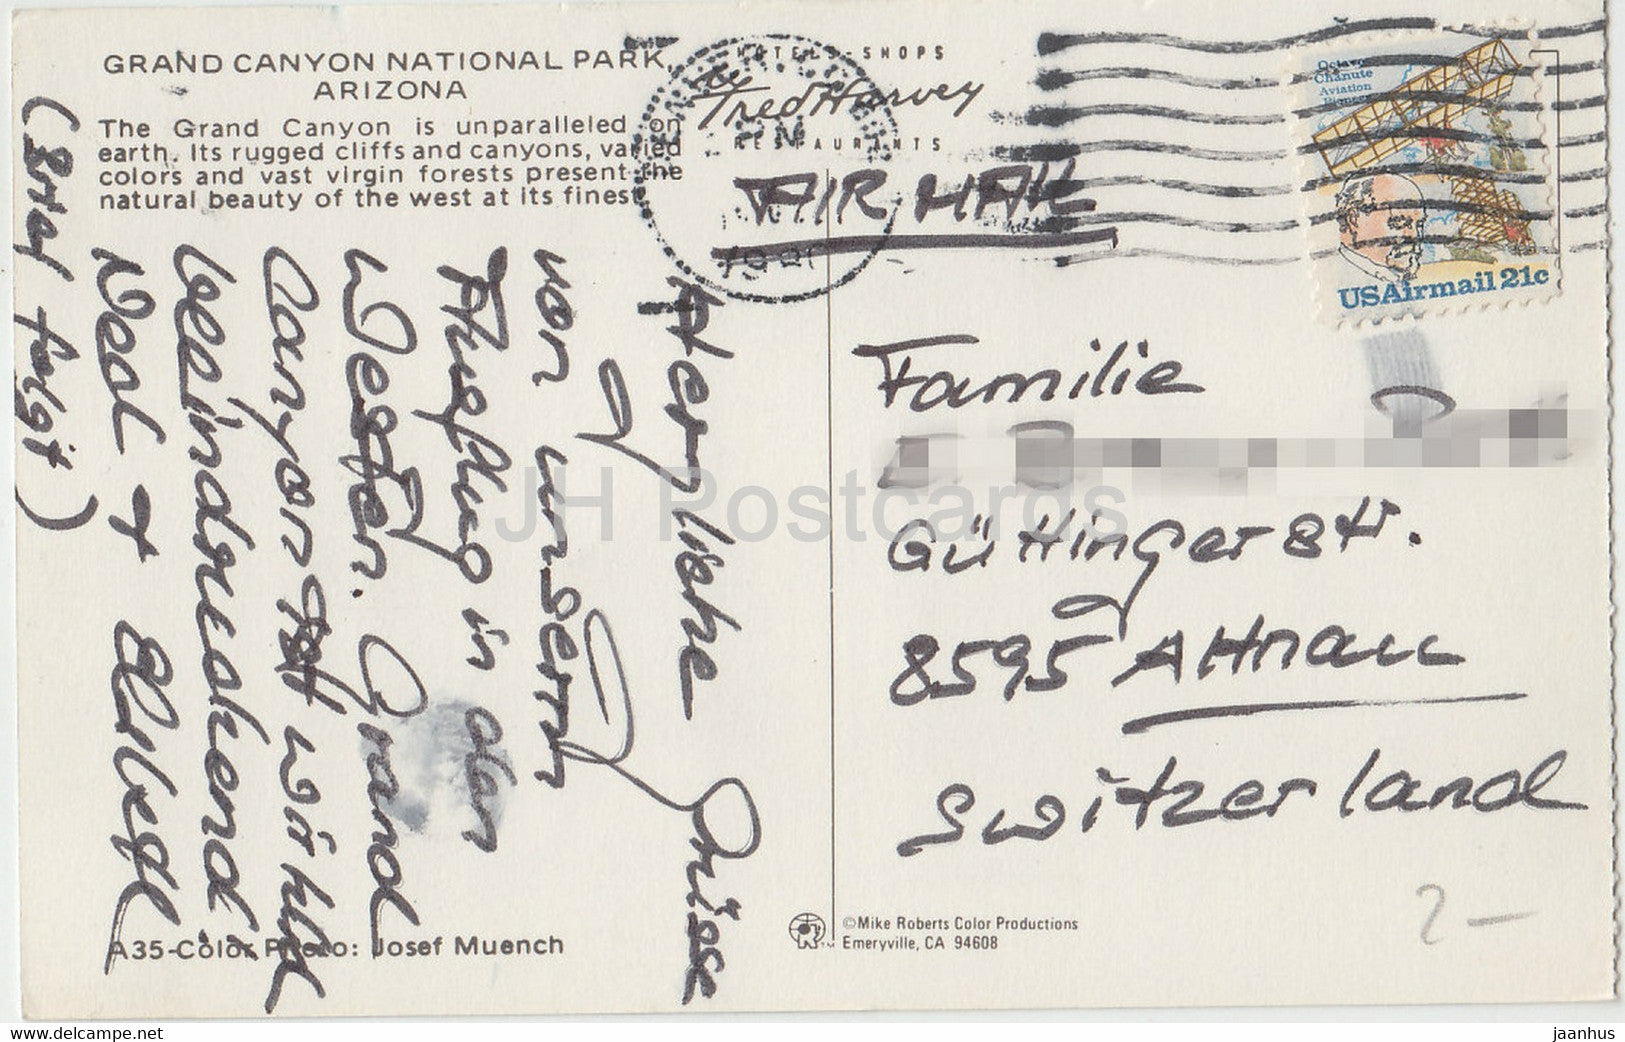 GRAND CANYON NATIONAL PARK,
ARIZONA
The Grand Canyon is unparalleled on
earth. Its rugged cliffs and canyons, varied
colors and vast virgin forests present the
natural beauty of the west at its finest.
HOTELS - SHOPS
Fred Harvey
RESTAURANTS
AIR MAIL
Octave
Chanute
Aviation
Pioneer
USAirmail 21c
Herzliche Grüsse
von unserm
Ausflug in den
Westen. Grand
Canyon ist wirkl.
beeindruckend
Neal +
(Brief folgt)
Familie
Güttingerstr.
8595 Altnau
Switzerland
2-
JH Postcards
A35-Color Photo: Josef Muench
©Mike Roberts Color Productions
Emeryville, CA 94608
www.delcampe.net
jaanhus